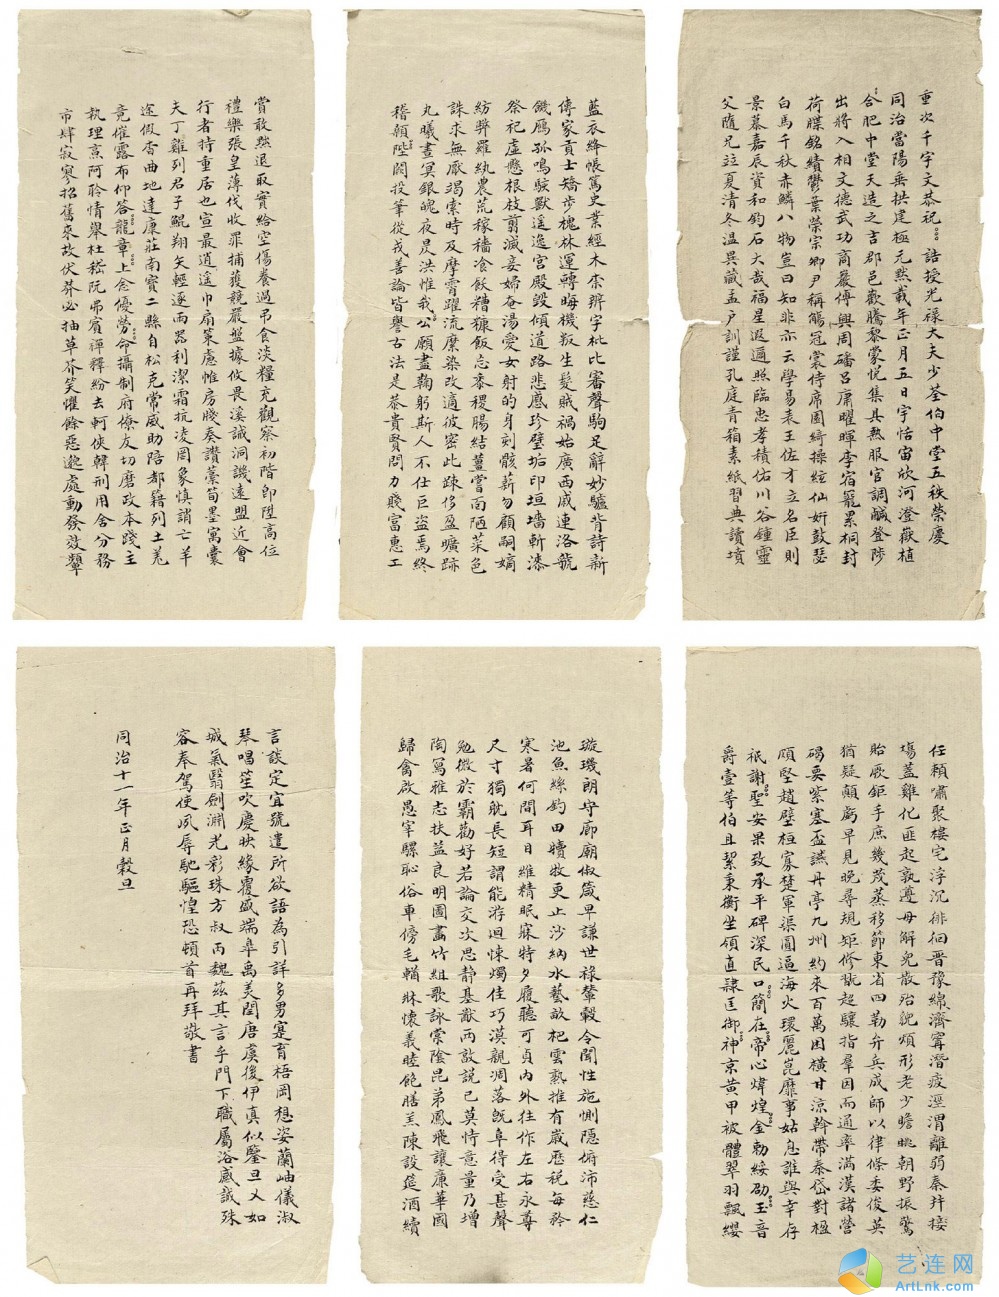 重次千字文恭祝誥授光祿大夫少荃伯中堂五秩榮慶
同治當陽垂拱建極元黓載年正月五日宇恬宙欣河澄嶽植
合肥中堂天造之吉郡邑歡騰黎蒙悅集具熱服官調鹹登陟
出將入相文德武功商巖傅興周磻呂肅曜暉李宿寵累桐封
荷牒銘績鬱葉榮宗卿尹稱觴冠裳侍席園綺操絃仙妍鼓瑟
白馬千秋赤鱗八物豈曰知非亦云學易表王佐才立名臣則
景慕嘉辰資和鈞石大哉福星遐邇照臨忠孝積佑川谷鍾靈
父隨兄竝夏清冬溫異藏孟戶訓謹孔庭青箱素紙習典讀墳
藍衣絳帳篤史業經木柰辨字枇比審聲駒足辭妙驢背詩新
傳家貢士矯步槐林運轉晦機叛生髮賊禍始廣西戚連洛號
饑雁孤鳴駭獸遥逸宮殿毀傾道路悲慼珍璧垢印垣墻斬漆
祭祀虛懸根枝翦滅妾婦奄湯愛女射的身刻骸薪勿顧嗣嫡
紡弊羅紈農荒稼穡飡飫糟糠飯忘黍稷腸結薑嘗面陋菜色
誅求無厭渴索時及摩霄躍流縻染改適彼密此疎侈盈曠跡
丸曦晝冥銀魄夜是洪惟我公願盡鞠躬斯人不仕巨盜焉終
稽顙陛闕投筆從戎善論皆譽古法是恭貴賢問力賤富惠工
賞敢黜退取實給空傷養過弔食淡糧充觀察初階即陞高位
禮樂張皇薄伐收罪捕獲競嚴盤據攸畏溪誠洞譏遠盟近會
行者持重居也宣最逍遥巾扇策慮帷房牋奏讚藁筍墨寓囊
夫丁雞列君子鯤翔矢輕逐雨器利潔霜抗凌罔象慎誚亡羊
途假杳曲地達康莊南賓二縣自松克常威助陪都籍列土羌
竟催露布仰答龍章上念優勞命攝制府僚友切磨政本踐主
執理京阿聆情舉杜嵇阮弗賓禪釋紛去軻俠韓刑用舍分務
市肆寂寥招舊來故伏莽必抽草芥笑懼餘惡邈處動發效顰
任賴嘯聚樓宅浮沉徘徊晉豫綿濟寗潛疲涇渭離弱秦并接
場蓋雞化匪起孰遵母解免散殆貌煩形老少瞻眺朝野振驚
貽厥鉅手庶幾茂蒸移節東省四勒弁兵成師以律條委俊英
猶疑顛虧早見晚尋規矩修毓超驤指羣因而通率滿漢諸營
碣要紫塞盃讌丹亭九州約來百萬因橫甘涼幹帶秦岱對楹
頗堅趙壁桓寡楚軍渠圓逼海火環麗崑靡事姑息誰與幸存
祇謝聖安果致承平碑深民口簡在帝心煒煌金勅綏劭玉音
爵壹等伯且絜秉衡坐領直隸匡御神京黃甲被體翠羽飄纓
璇璣朗守廊廟俶箴早謙世祿輦轂令聞性施惻隱俯沛慈仁
池魚絲釣田犢牧更止沙納水藝畝杷雲熟推有歲歷稅每矜
寒暑何間耳目雖精眠寐特夕履聽可貞內外往作左右永尊
尺寸獨躭長短謂能游迴悚燭佳巧漠親凋落旣阜得受甚聲
勉微於霸勸好若論交次思靜基猷丙敦說已莫恃意量乃增
陶寫雅志扶益良明圖畫竹組歌詠棠陰昆弟鳳飛讓廉華國
歸禽啟愚宰騾恥俗車傍毛輶牀懷義睦飽膳羔陳設筵酒續
言談定宜號遣所欲語為引詳多男寔育梧岡想姿蘭岫儀淑
琴唱笙吹慶映緣覆盛端阜禹美閏唐虞後伊真似鑒旦乂如
城氣翳劍淵光彩珠方叔丙魏茲其言乎門下職屬浴感誠殊
容奉駕使夙辱馳驅惶恐頓首再拜敬書
同治十一年正月穀旦
艺连网
ArtLnk.com